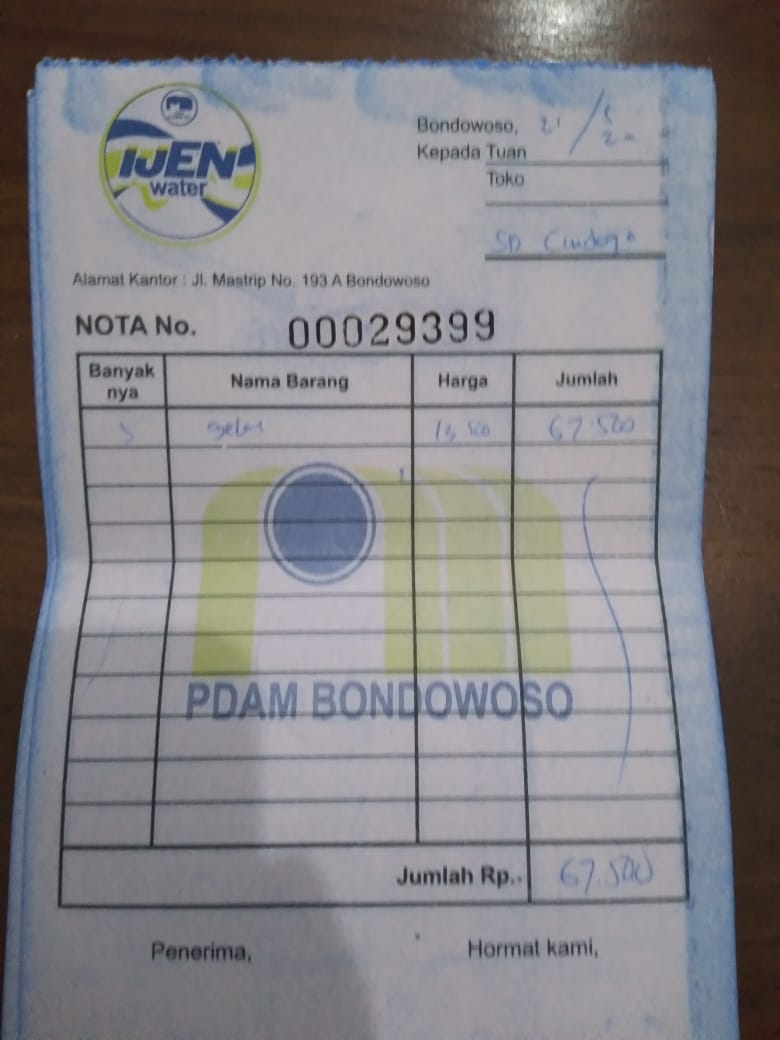 IJEN
water
Bondowoso, 21/5
20
Kepada Tuan
Toko
SD
Alamat Kantor : Jl. Mastrip No. 193 A Bondowoso
NOTA No. 00029399
Banyak nya Nama Barang Harga Jumlah
5 gelas 13.500 67.500
PDAM BONDOWOSO
Jumlah Rp.. 67.500
Penerima, Hormat kami,